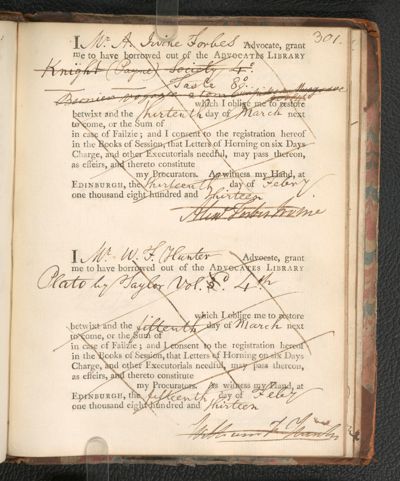 301.
I Mr. A. Irvine Forbes Advocate, grant
me to have borrowed out of the ADVOCATES LIBRARY
Knight (Payne) Society 4o.
8o.
which I oblige me to restore
betwixt and the thirteenth day of March next
to come, or the Sum of
in case of Failzie; and I consent to the registration hereof
in the Books of Session, that Letters of Horning on six Days
Charge, and other Executorials needful, may pass thereon,
as effeirs, and thereto constitute
my Procurators. As witness my Hand, at
EDINBURGH, the thirteenth day of Febry
one thousand eight hundred and thirteen
I Mr. W. F. Hunter Advocate, grant
me to have borrowed out of the ADVOCATES LIBRARY
Plato by Taylor Vol. 4th
which I oblige me to restore
betwixt and the fifteenth day of March next
to come, or the Sum of
in case of Failzie; and I consent to the registration hereof
in the Books of Session, that Letters of Horning on six Days
Charge, and other Executorials needful, may pass thereon,
as effeirs, and thereto constitute
my Procurators. As witness my Hand, at
EDINBURGH, the fifteenth day of Febry
one thousand eight hundred and thirteen
William F Hunter